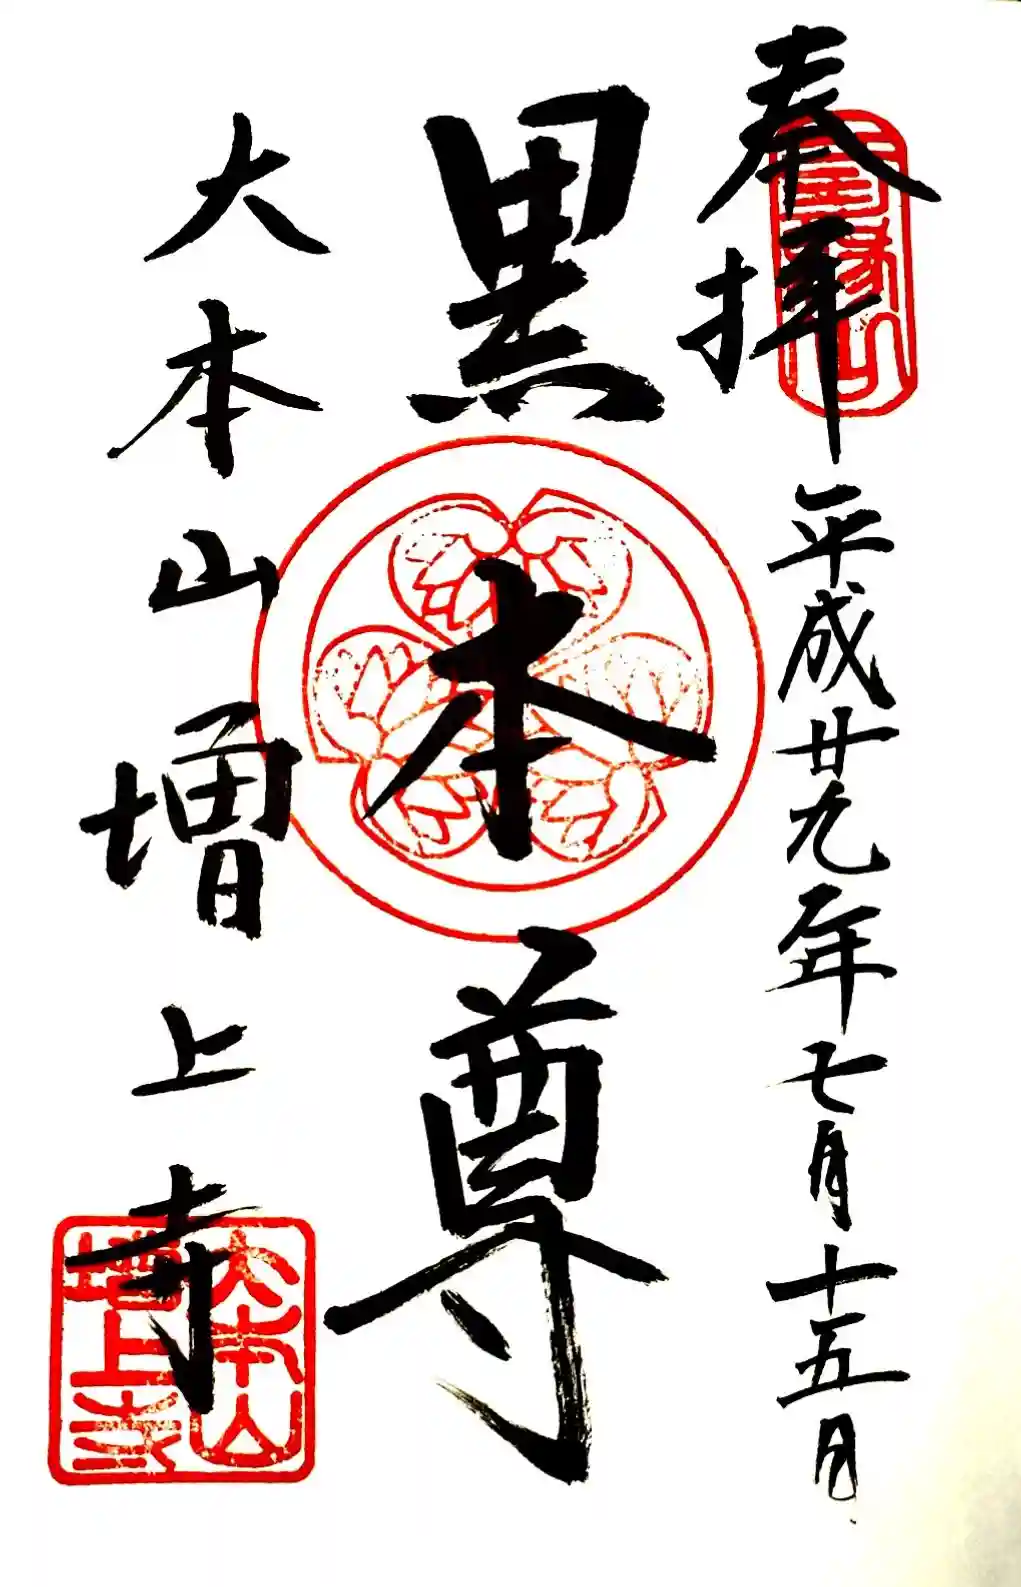 奉拝
平成廿九年七月十五日
三縁山
黒本尊
大本山増上寺
大本山
増上寺